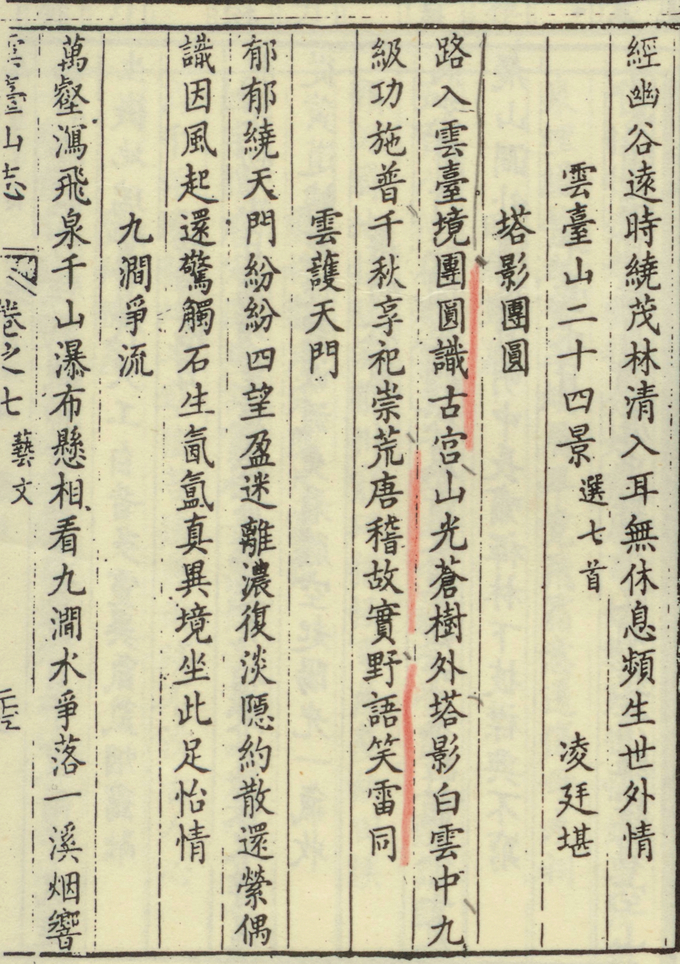 經幽谷遠時繞茂林清入耳無休息頻生世外情
雲臺山二十四景選七首 凌廷堪
塔影團圓
路入雲臺境團圓識古宮山光蒼樹外塔影白雲中九
級功施普千秋享祀崇荒唐稽故實野語笑雷同
雲護天門
郁郁繞天門紛紛四望盈迷離濃復淡隱約散還縈偶
識因風起還驚觸石生氤氳真異境坐此足怡情
九澗爭流
萬壑瀉飛泉千山瀑布懸相看九澗水爭落一溪烟響
雲臺山志 卷之七 藝文